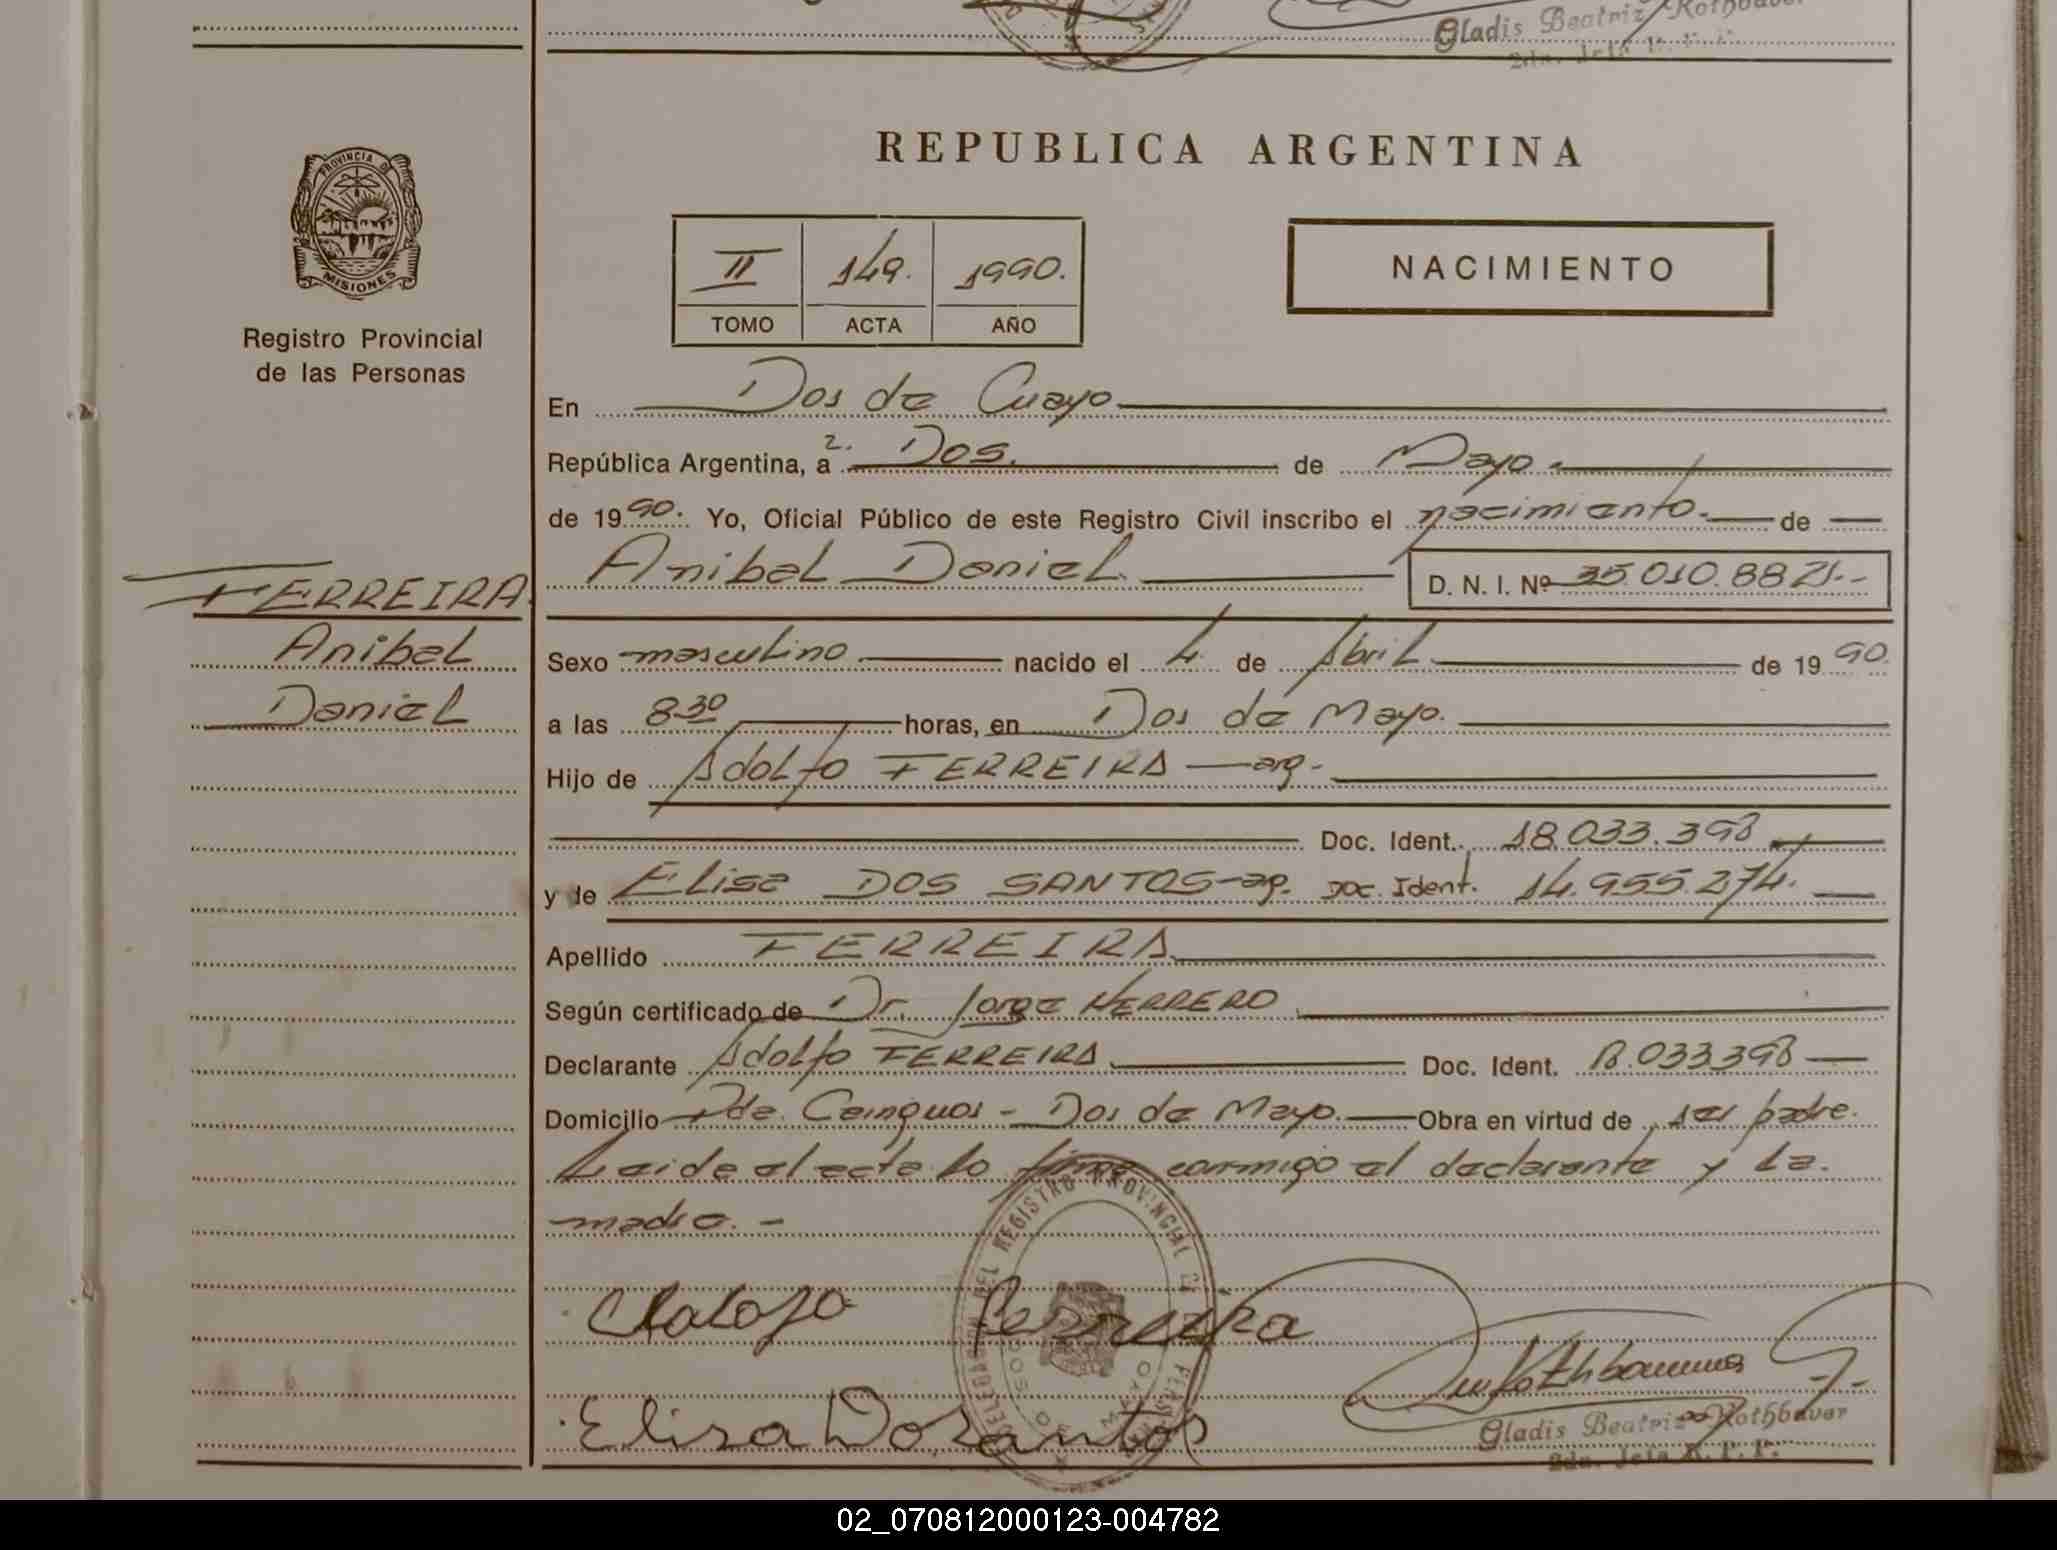 Gladis Beatriz Rothbauer
REPUBLICA ARGENTINA
PROVINCIA DE
MISIONES
Registro Provincial
de las Personas
II 149. 1990.
TOMO ACTA AÑO
NACIMIENTO
En Dos de Mayo
República Argentina, a 2. Dos. de Mayo
de 1990. Yo, Oficial Público de este Registro Civil inscribo el nacimiento. de
Anibal Daniel D. N. I. Nº 35.010.882
FERREIRA
Anibal
Daniel
Sexo masculino nacido el 4 de Abril de 1990.
a las 8 30 horas, en Dos de Mayo.
Hijo de Adolfo FERREIRA - arg-
Doc. Ident. 18.033.398
y de Elisa DOS SANTOS - ag. Doc. Ident. 14.955.274.
Apellido FERREIRA
Según certificado de Dr. Jorge HERRERO
Declarante Adolfo FERREIRA Doc. Ident. 18.033.398
Domicilio Pde. Cainguas - Dos de Mayo. Obra en virtud de ser padre.
Leida el acta la firma conmigo el declarante y la.
madre. -
DELEGACION DEL REGISTRO PROVINCIAL DE LAS PERSONAS
DOS DE MAYO
Adolfo Ferreira
Elisa Dosantos
Gladis Beatriz Rothbauer
2da. Jefa R. P. P.
02_070812000123-004782